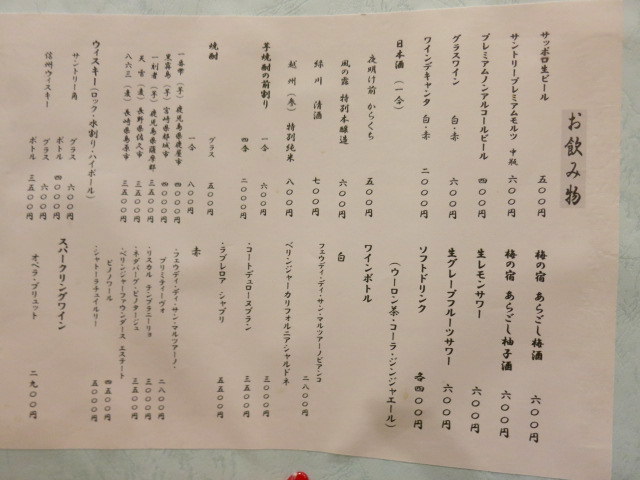 お飲み物
サッポロ生ビール 五〇〇円
サントリープレミアムモルツ 中瓶 六〇〇円
プレミアムノンアルコールビール 四〇〇円
グラスワイン 白・赤 六〇〇円
ワインデキャンタ 白・赤 二〇〇〇円
日本酒（一合）
夜明け前 からくち 五〇〇円
風の露 特別本醸造 六〇〇円
緑川 清酒 七〇〇円
越州（参）特別純米 八〇〇円
芋焼酎の前割り 一合 六〇〇円
四合 二〇〇〇円
焼酎 グラス 五〇〇円
一合 八〇〇円
一番雫（芋）鹿児島県鹿屋市 四〇〇〇円
黒霧島（芋）宮崎県都城市 四〇〇〇円
一刻者（芋）鹿児島県薩摩郡 三五〇〇円
天雲（麦）長野県佐久市 三五〇〇円
八六三（麦）長崎県島県市 三五〇〇円
ウィスキー（ロック・水割り・ハイボール）
サントリー角 グラス 六〇〇円
ボトル 四〇〇〇円
信州ウイスキー グラス 六〇〇円
ボトル 三五〇〇円
梅の宿 あらごし梅酒 六〇〇円
梅の宿 あらごし柚子酒 六〇〇円
生レモンサワー 六〇〇円
生グレープフルーツサワー 六〇〇円
ソフトドリンク 各四〇〇円
（ウーロン茶・コーラ・ジンジャエール）
ワインボトル
白
フェウディ・ディ・サン・マルツアーノビアンコ 二八〇〇円
ベリンジャーカリフォルニア・シャルドネ 三〇〇〇円
・コートデュローヌブラン 三五〇〇円
・ラブレロア・シャブリ 五五〇〇円
赤
・フェウディ・ディ・サン・マルツアーノ・
プリミティーヴォ 二八〇〇円
・リスカル テンプラニーリョ 三〇〇〇円
・ネダバーグ・ピノタージュ 三五〇〇円
・ベリンジャーファウンダース エステート
ピノノワール 四五〇〇円
・シャトーラチュイルリー 五五〇〇円
スパークリングワイン
オペラ・ブリュット 二九〇〇円